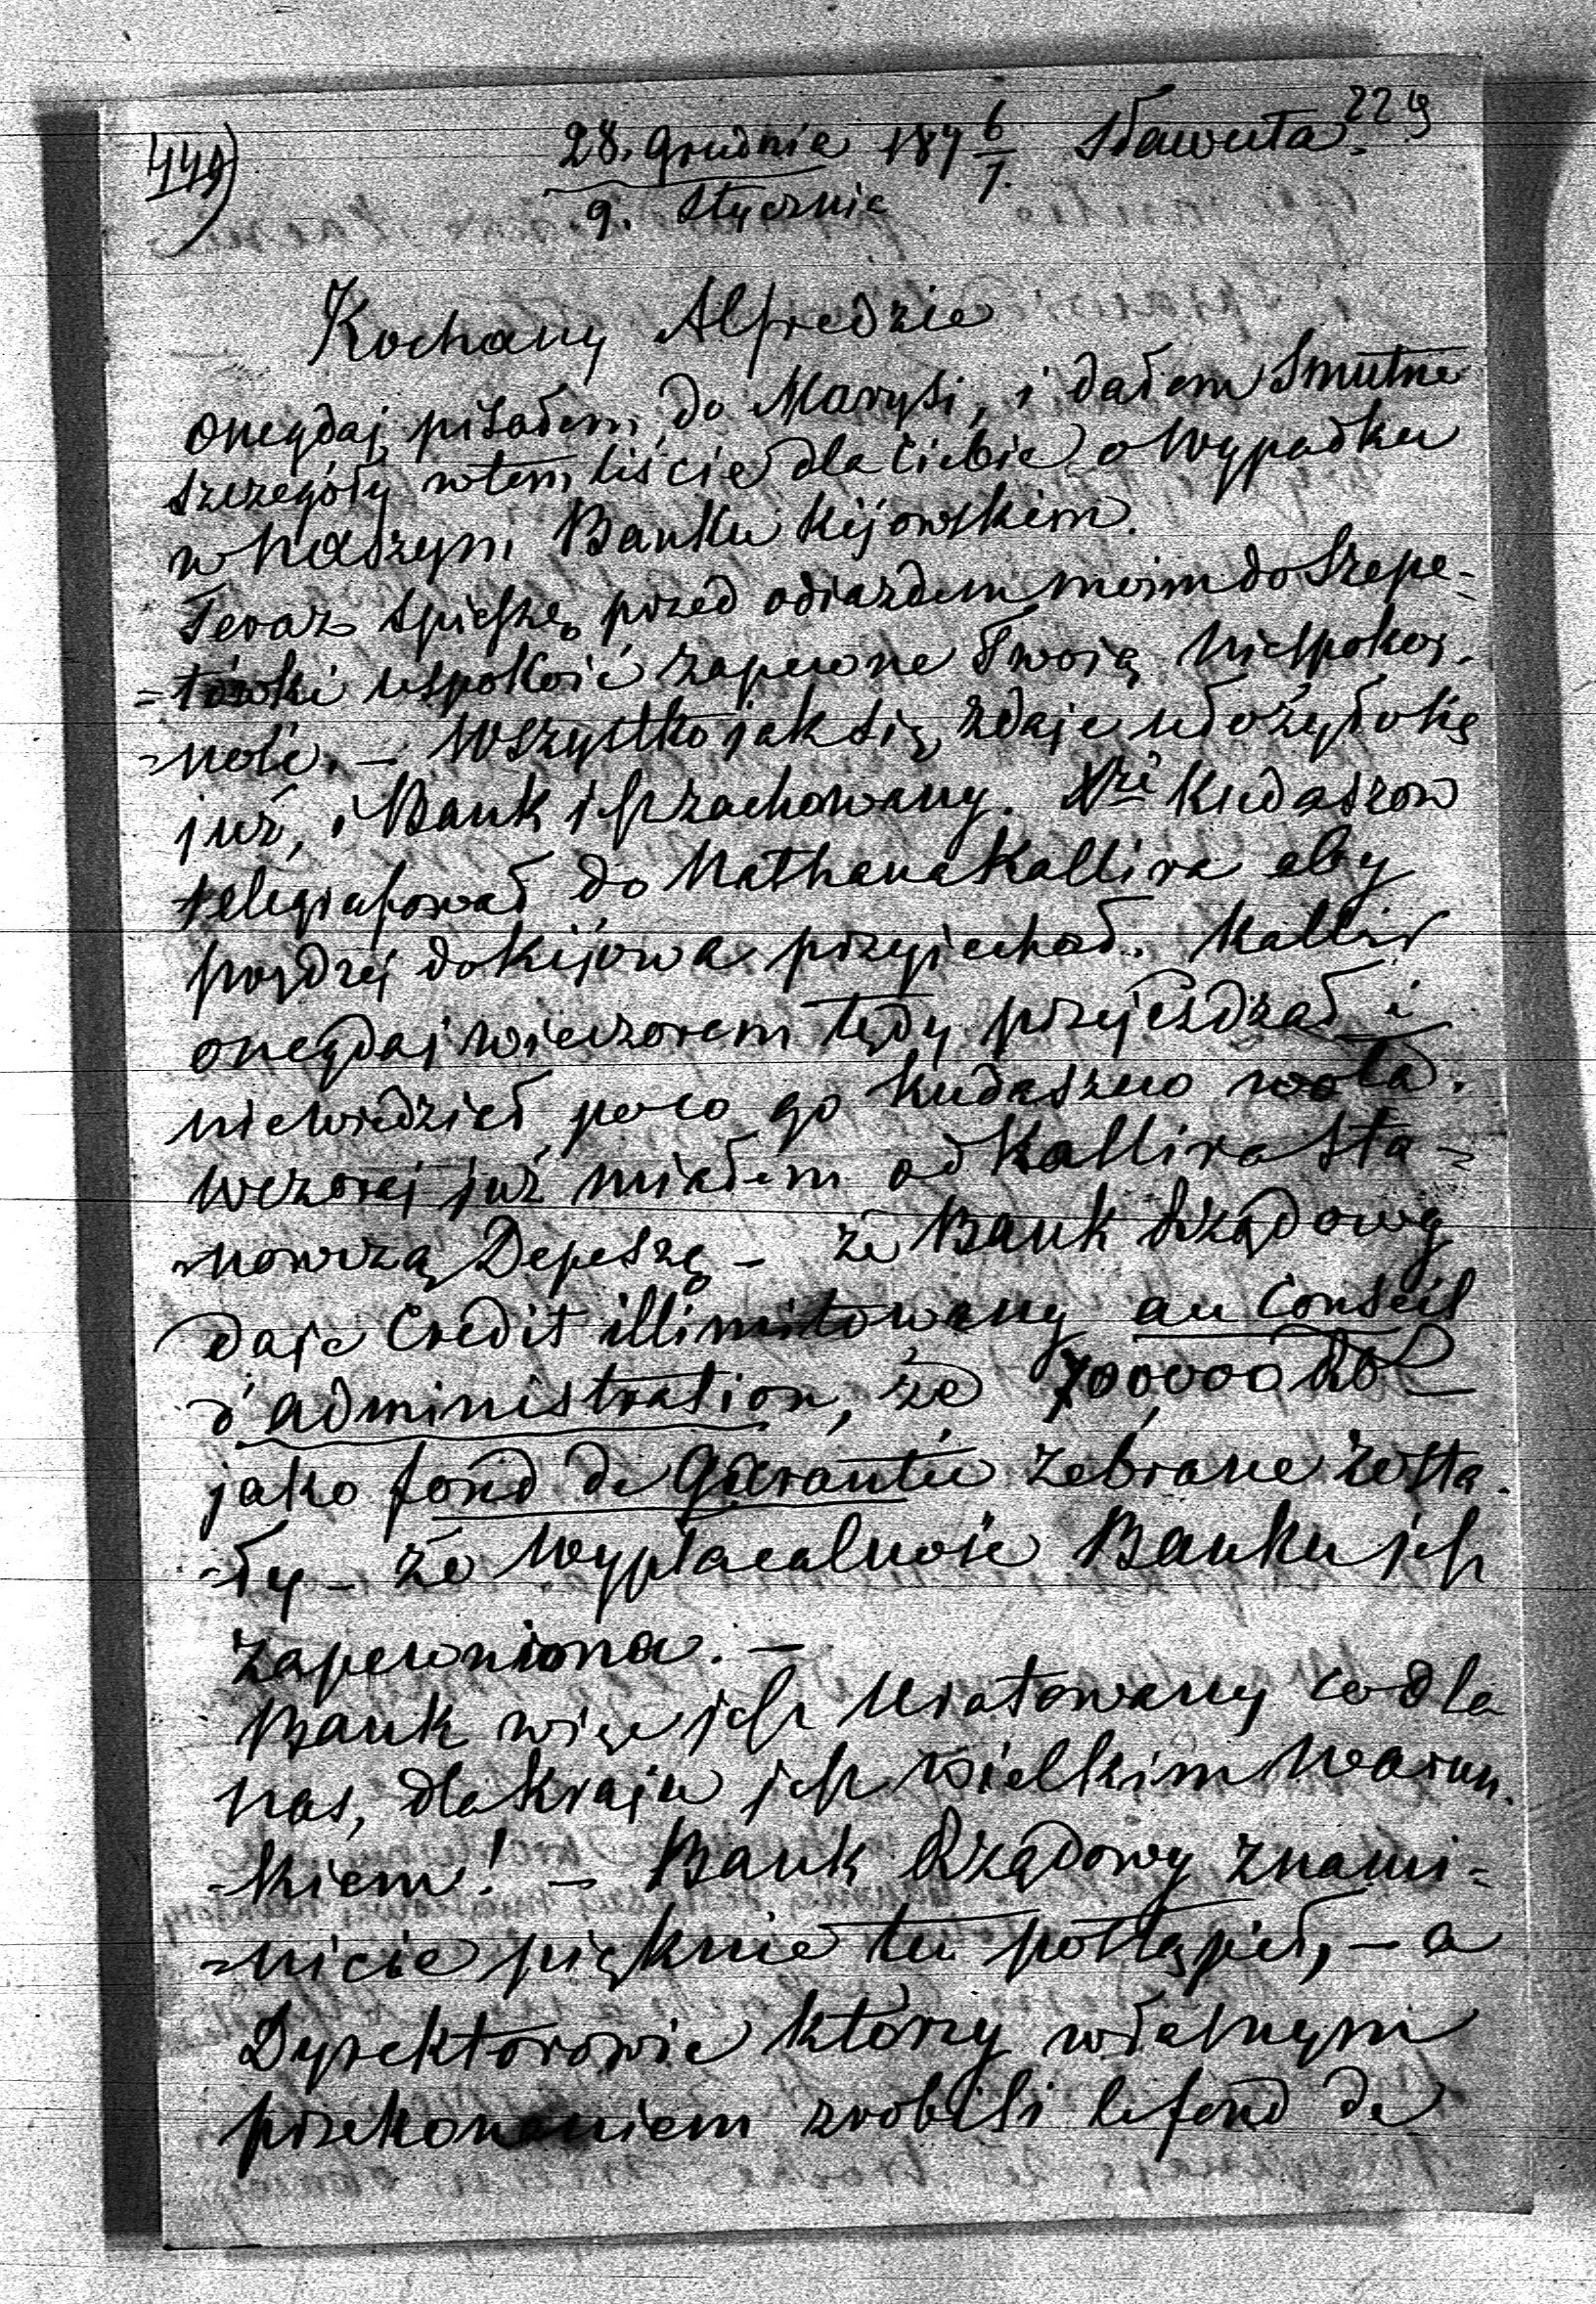 449) 28. Grudnia 187 6/7. Sławuta. 229
9. Stycznia
Kochany Alfredzie
onegdaj pisałem do Marysi, i dałem smutne
szczegóły w tem liście dla Ciebie o wypadku
w naszym Banku Kijowskim.
Teraz spieszę przed odiazdem moim do Szepe-
-tówki uspokoić zapewne Twoią niespokoj-
-ność. – Wszystko jak się zdaje ułożyło się
już, i Bank jest zachowany. Xże Kudaszow
telegrafował do Nathana Kallira aby
prędzej do Kijowa przyjechał. Kallir
onegdaj wieczorem tędy przejeżdżał i
niewiedział poco go Kudaszew woła.
Wczoraj już miałem od Kallira sta-
-nowczą Depeszę – że Bank Rządowy
daje Credit illimitowany au Conseil
d'administration, że 700,000 Rbl
jako fond de Garantie zebrane zosta-
-ły – że wypłacalność Banku jest
zapewniona. –
Bank więc jest uratowany co dla
nas, dla Kraju jest wielkim warun-
-kiem! – Bank Rządowy znami-
-nicie pięknie tu postąpił, – a
Dyrektorowie którzy własnym
przekonaniem zrobili le fond de